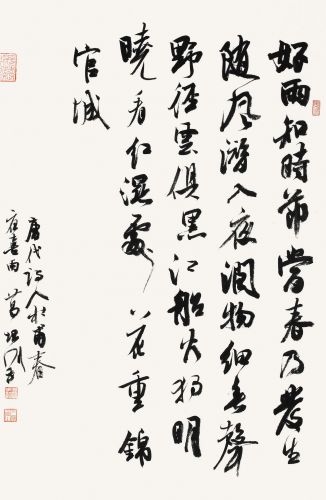 好雨知時節當春乃發生
隨風潛入夜潤物細無聲
野徑雲俱黑江船火獨明
曉看紅濕處花重錦
官城
唐代詩人杜甫春
夜喜雨